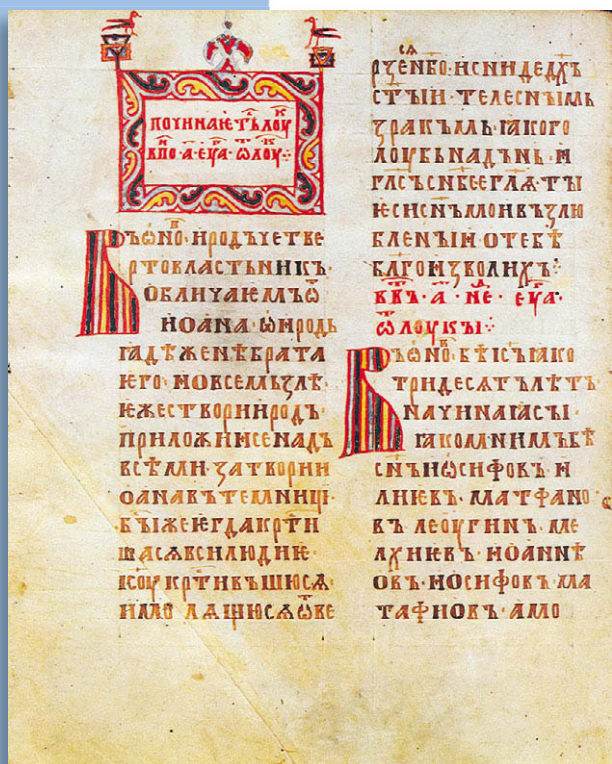 починаѥтълоу к
в по · а · еѵа · ѿлоу к ⁘
Въѡно · иродъчетве
ртовластьникъ ·
обличаѥмъѿ
иоана · ѡиродь
ꙗдѣженѣбрата
ѥго · иовсемьзлѣ ·
ѥжествориродъ ·
приложиисенадъ
всѣми · затвории
оанавътемниці ·
быжеѥгдакрти
шасѧвсилюдиѥ ·
ісоукртивъшюсѧ ·
имолѧщюсѧѿве
сѧ
рзенбо · иснидедхъ
стыи · телеснымь
зракъмь · ꙗкого
лоубьнадънь · и
гласъснбсеглѧ · ты
ѥсиснъмоивъзлю
бленыи · отебѣ
благоизволихъ ⁘
въ · а · не · еѵа ·
ѿлоукы ⁘
Въѡно · бѣісъꙗко
тридесѧтълѣтъ
начинаꙗсы ·
ꙗкомнимъбѣ
снъиѡсифовъ · и
лииевъ · матфано
въ · леоугинъ · ме
лхиевъ · иоаннѣ
овъ · иосифовъ · ма
тафиовъ · амо